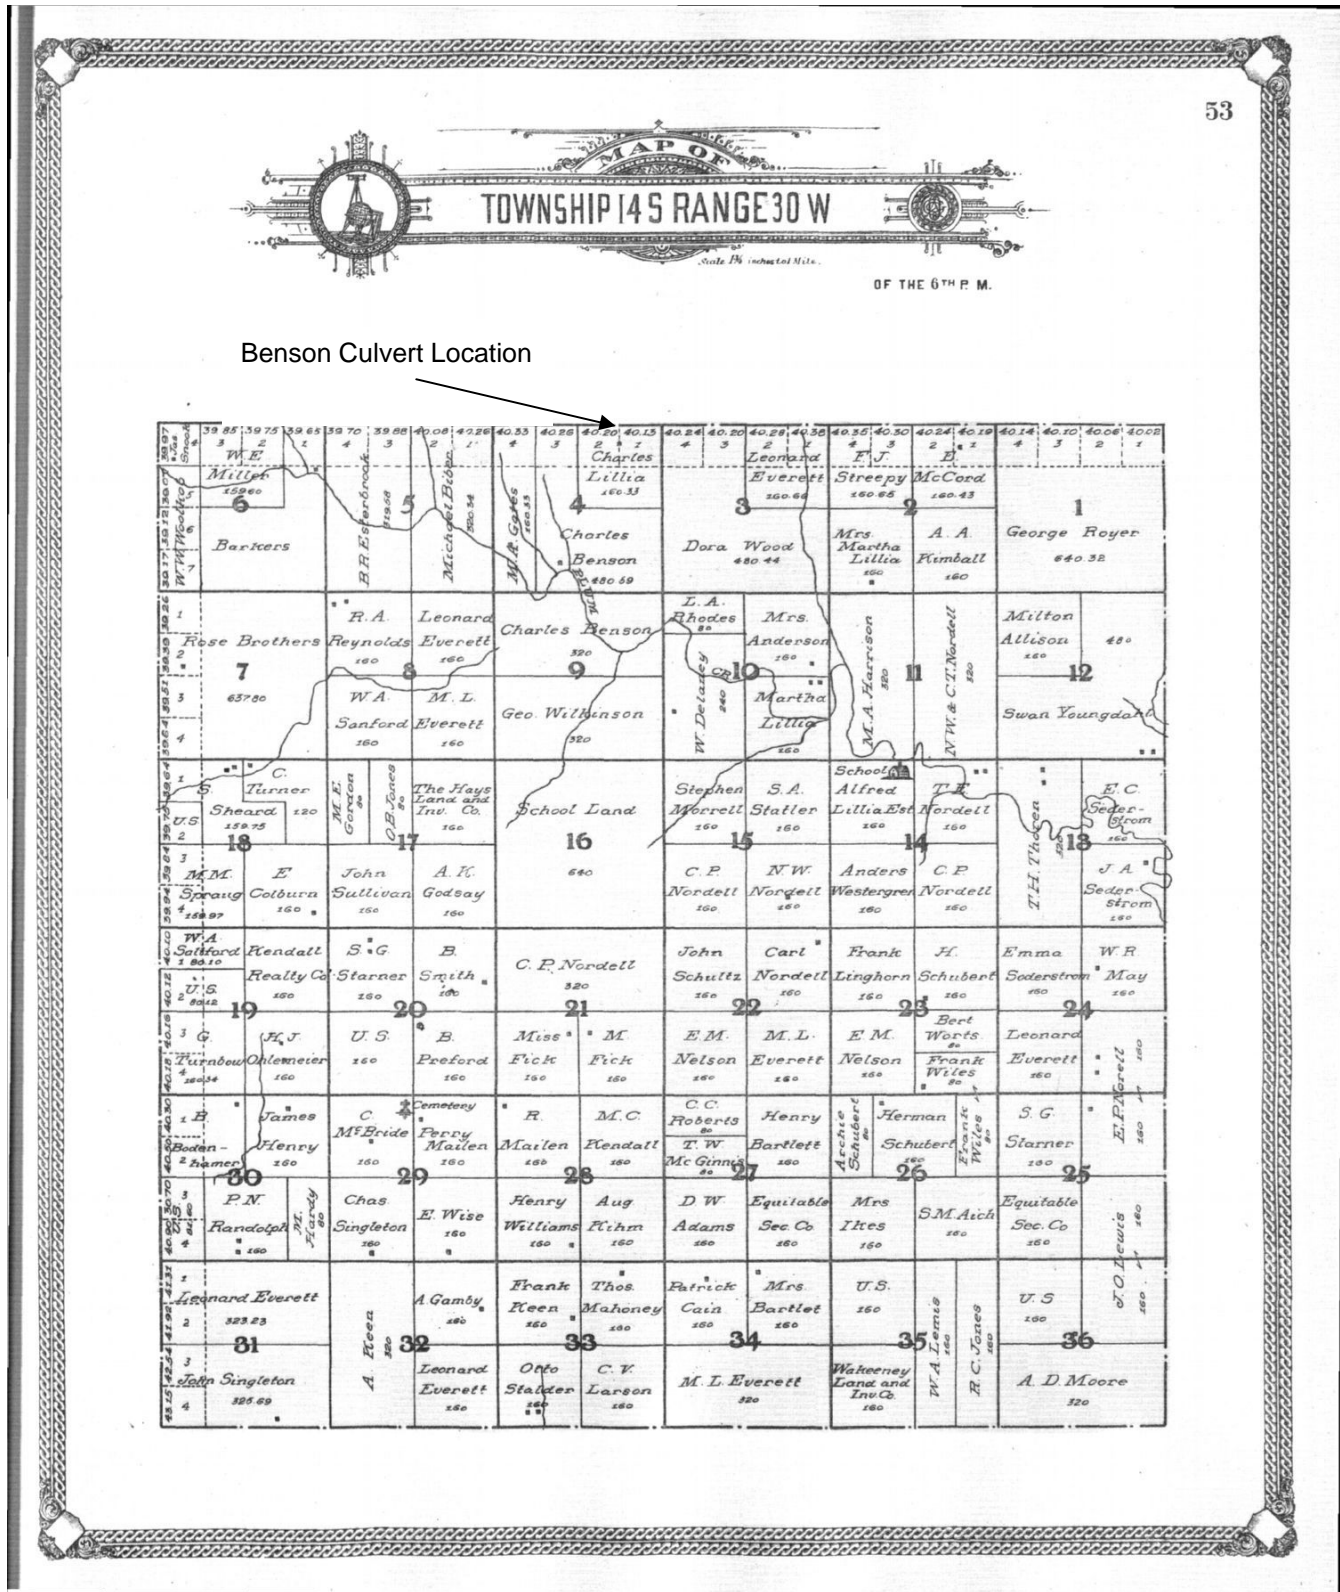 53
MAP OF
TOWNSHIP 14 S RANGE 30 W
Scale 1¾ inches to 1 Mile.
OF THE 6TH P. M.
Benson Culvert Location
39.85 39.75 39.65 39.70 39.88 40.08 40.26 40.33 40.26 40.20 40.13 40.24 40.20 40.28 40.38 40.35 40.30 40.24 40.19 40.14 40.10 40.06 40.02
W. E.
Miller
159.60
6
Barkers
W.W. Woolhop
B.R. Esterbrook
319.58
5
Michael Biber
320.34
M.A. Gates
160.33
Charles
Lillia
160.33
4
Charles
Benson
480.59
Leonard
Everett
160.66
3
Dora Wood
480.44
F. J.
Streepy
160.65
E.
McCord
160.43
2
Mrs.
Martha
Lillia
160
A. A.
Kimball
160
1
George Royer
640.32
Rose Brothers
7
637.80
R. A.
Reynolds
160
Leonard
Everett
160
8
W. A.
Sanford
160
M. L.
Everett
160
Charles Benson
320
9
Geo. Wilkinson
320
L. A.
Rhodes
80
Mrs.
Anderson
160
W. Delaney
240
CR.
10
Martha
Lillia
160
M. A. Harrison
320
11
N.W. & C.T. Nordell
320
Milton
Allison
160
480
12
Swan Youngdahl
S.
Sheard
159.75
C.
Turner
120
U.S.
18
M. M.
Spraug
159.97
E
Colburn
160
M. E.
Gordon
80
O.B. Jones
80
The Hays
Land and
Inv. Co.
160
17
John
Sullivan
160
A. K.
Godsay
160
School Land
16
640
Stephen
Morrell
160
S. A.
Statler
160
15
C. P.
Nordell
160
N. W.
Nordell
160
School
Alfred
Lillia Est
160
T. E.
Nordell
160
14
Anders
Westergren
160
C. P.
Nordell
160
T.H. Thoren
320
E. C.
Seder-
strom
160
13
J. A
Seder-
strom
160
W. A.
Saltford
80.10
U. S.
80.12
Kendall
Realty Co
160
19
G.
Turnbow
160.34
H. J.
Ohlemeier
160
S. G.
Starner
160
B.
Smith
160
20
U. S.
160
B.
Preford
160
C. P. Nordell
320
21
Miss
Fick
160
M
Fick
160
John
Schultz
160
Carl
Nordell
160
22
E. M.
Nelson
160
M. L.
Everett
160
Frank
Linghorn
160
H.
Schubert
160
23
E. M.
Nelson
160
Bert
Worts
80
Frank
Wiles
80
Emma
Soderstrom
160
W. R
May
160
24
Leonard
Everett
160
E.P. Norell
160
160
B.
Boden-
hamer
James
Henry
160
30
P. N.
Randolph
160
M.
Hardy
80
U.S.
C.
McBride
160
Cemetery
Perry
Mailen
160
29
Chas.
Singleton
160
E. Wise
160
R.
Mailen
160
M. C.
Kendall
160
28
Henry
Williams
160
Aug
Kihm
160
C. C.
Roberts
80
T. W.
McGinnis
80
Henry
Bartlett
160
27
D W.
Adams
160
Equitable
Sec. Co
160
Archie
Schubert
80
Herman
Schubert
160
Frank
Wiles
80
26
Mrs
Ikes
160
S.M. Aich
160
S. G.
Starner
160
25
Equitable
Sec. Co
160
J. O. Lewis
160
160
Leonard Everett
323.23
31
John Singleton
325.69
A Keen
320
A. Gamby
160
32
Leonard
Everett
160
Frank
Keen
160
Thos.
Mahoney
160
33
Otto
Stalder
160
C. V.
Larson
160
Patrick
Cain
160
Mrs.
Bartlet
160
34
M. L. Everett
320
U. S.
160
35
Wakeeney
Land and
Inv. Co.
160
W. A. Lemis
160
R. C. Jones
160
U. S
160
36
A. D. Moore
320